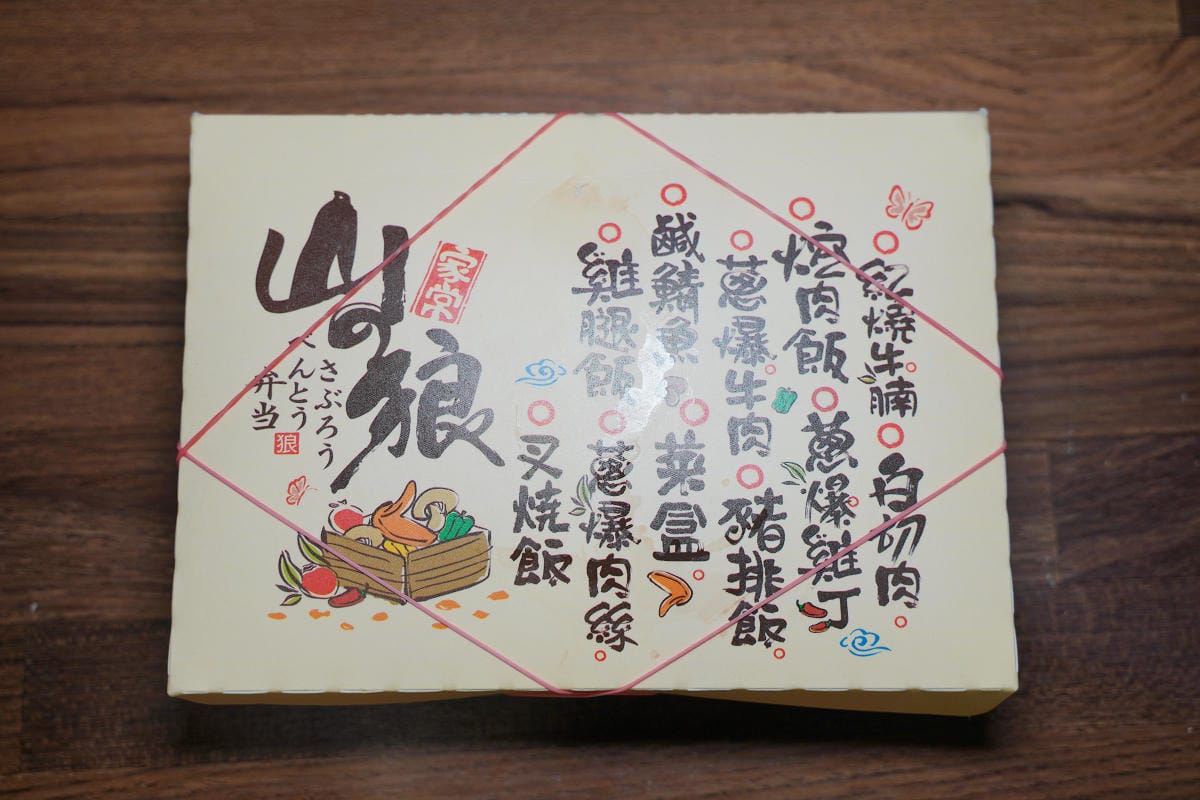 紅燒牛腩
白切肉
焢肉飯
蔥爆雞丁
蔥爆牛肉
豬排飯
鹹鯖魚
菜盒
雞腿飯
蔥爆肉絲
叉焼飯
家常
山の狼
さぶろう
べんとう
弁当
狼